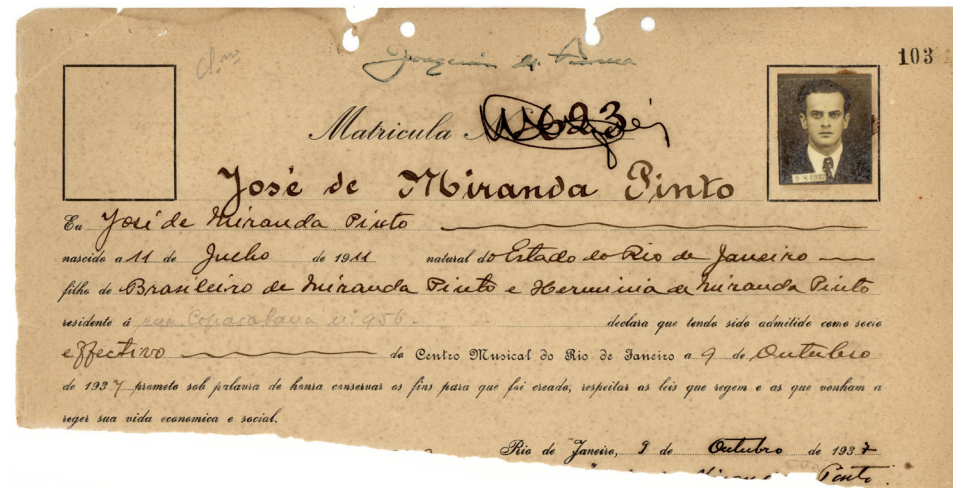 103
Joaquim
Matricula N 623
José de Miranda Pinto
Eu José de Miranda Pinto
nascido a 11 de Julho de 1911 natural do Estado do Rio de Janeiro
filho de Brasileiro de Miranda Pinto e Herminia de Miranda Pinto
residente á rua Copacabana nº 956.
declara que tendo sido admitido como socio
effectivo do Centro Musical do Rio de Janeiro a 9 de Outubro
de 1937 prometo sob palavra de honra conservar os fins para que foi creado, respeitar as leis que regem e as que venham a
reger sua vida economica e social.
Rio de Janeiro, 9 de Outubro de 1937
Pinto